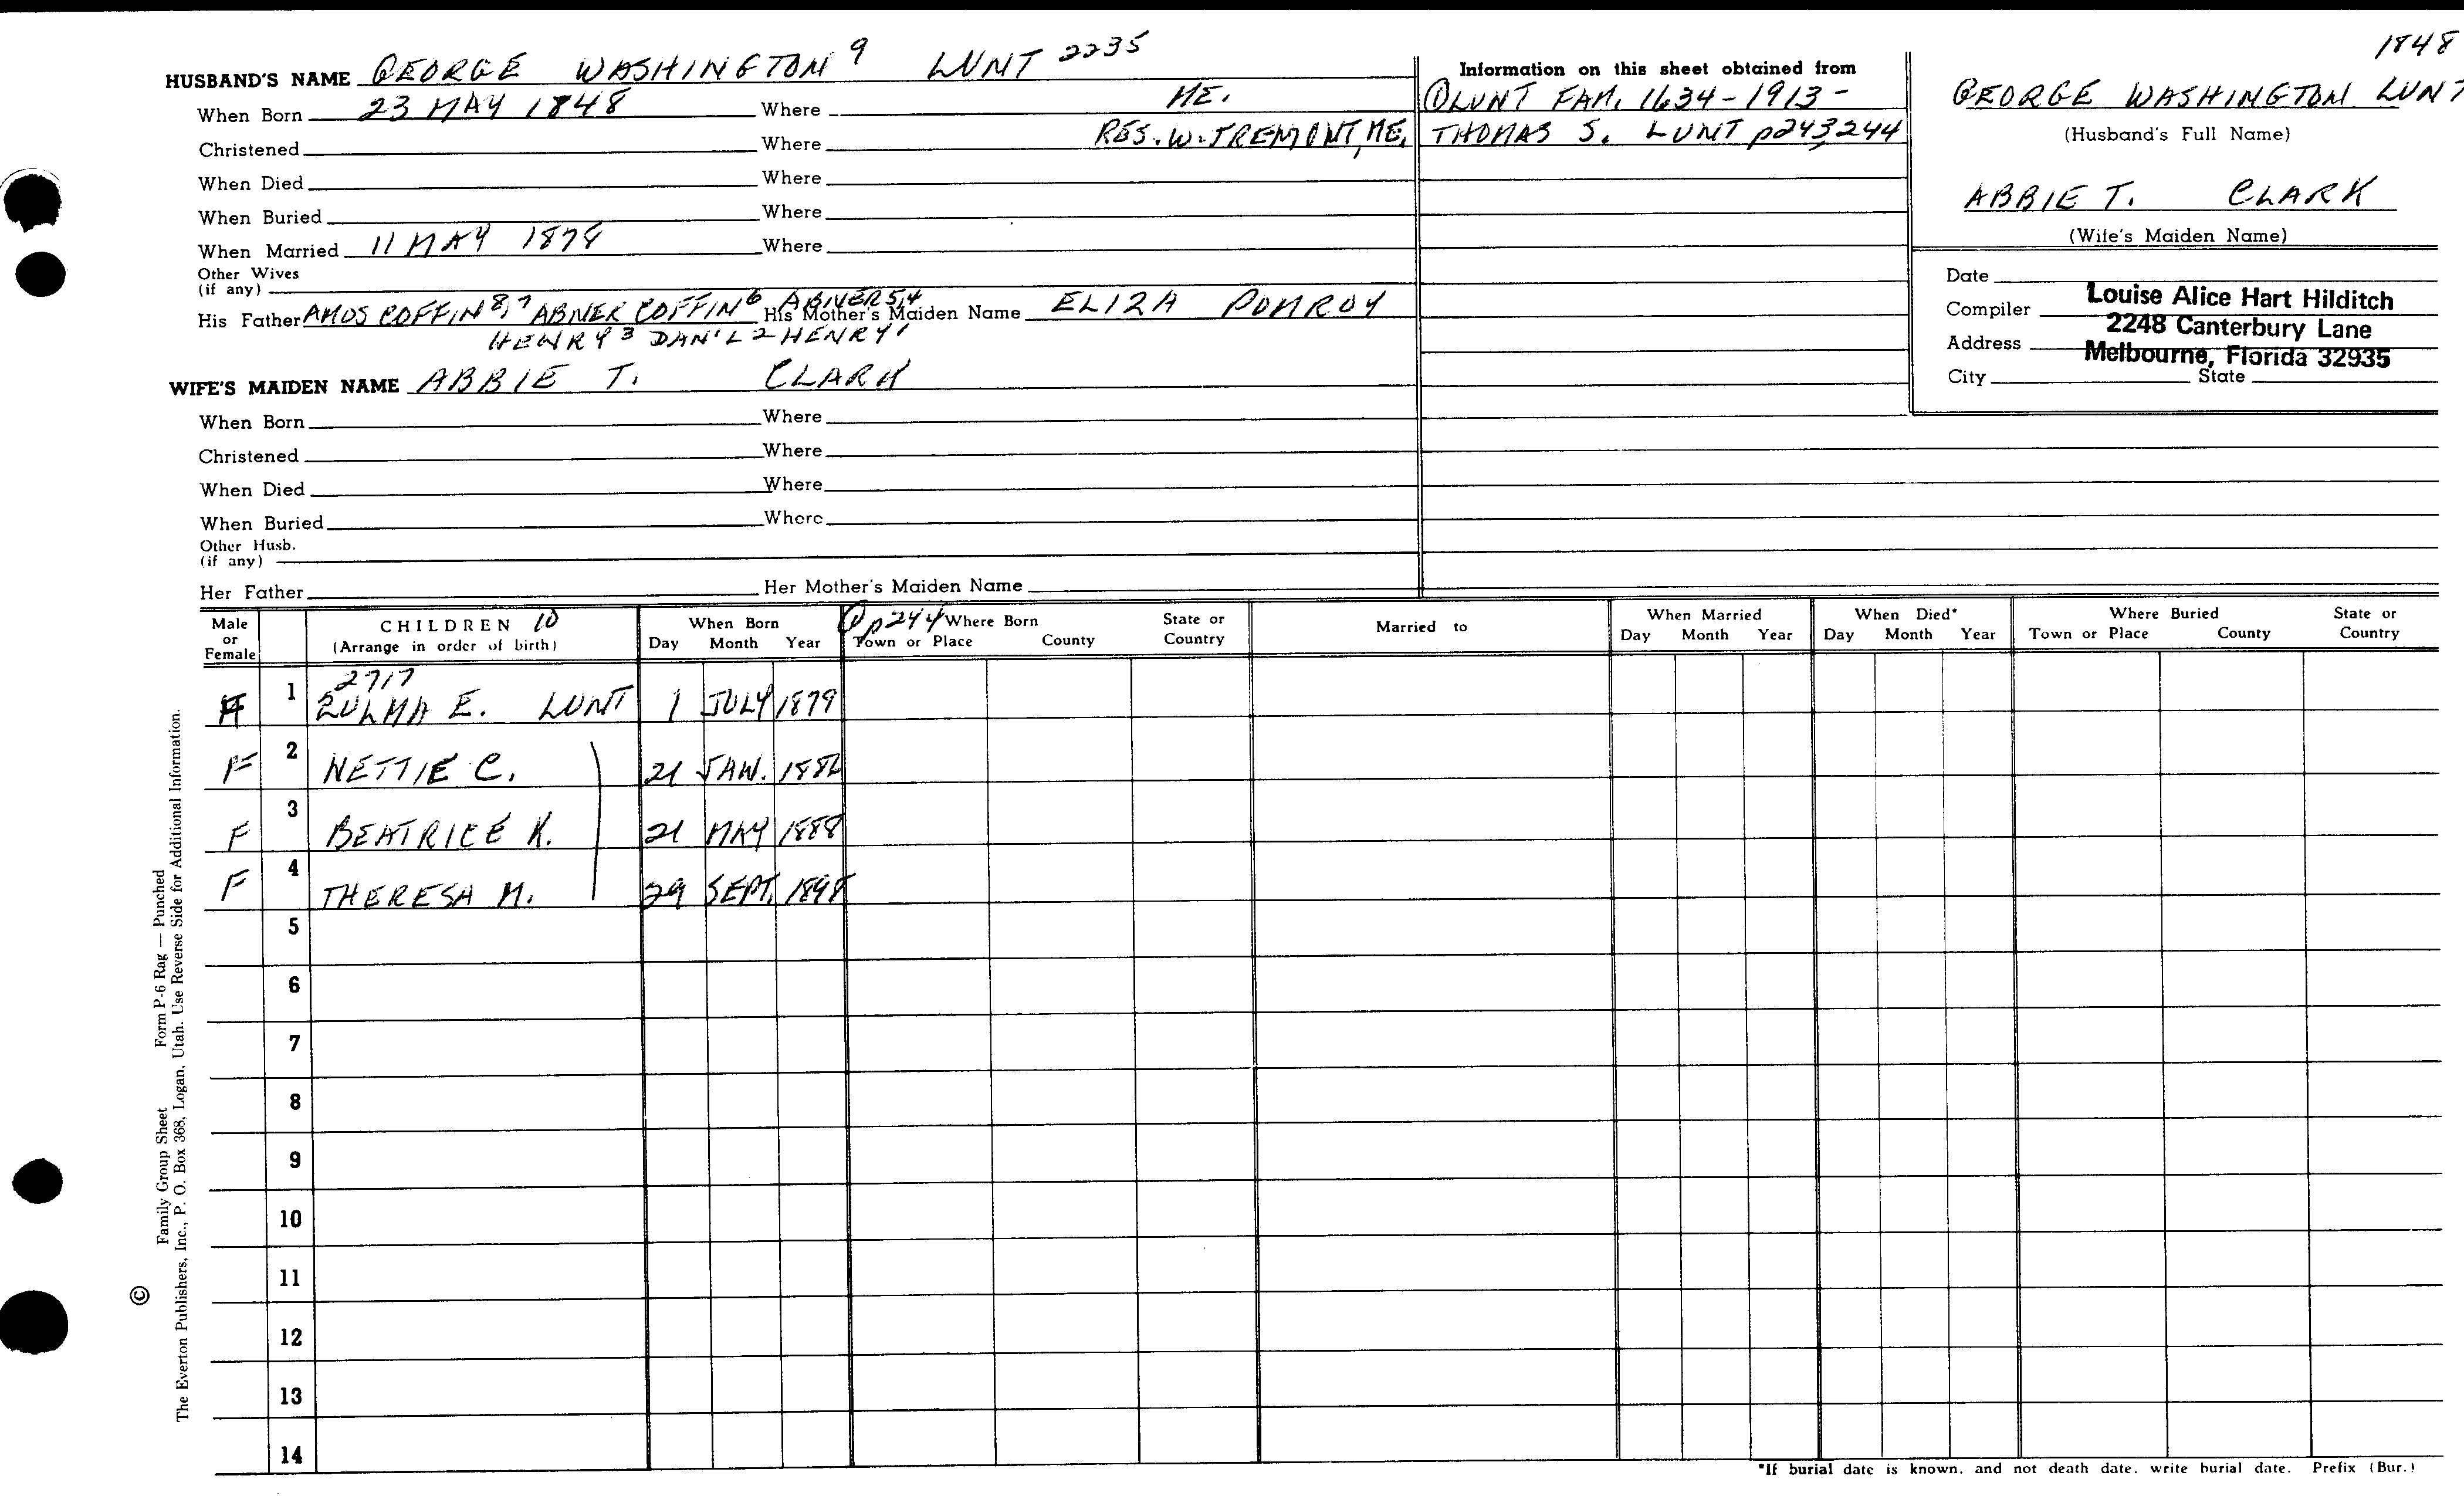 1848
HUSBAND'S NAME GEORGE WASHINGTON 9 LUNT 2235
When Born 23 MAY 1848 Where ME.
Christened Where RES. W. TREMONT, ME.
When Died Where
When Buried Where
When Married 11 MAY 1878 Where
Other Wives
(if any)
His Father AMOS COFFIN 8,7 ABNER COFFIN 6 ABNER 5,4 His Mother's Maiden Name ELIZA POMROY
HENRY 3 DAN'L 2 HENRY 1
WIFE'S MAIDEN NAME ABBIE T. CLARK
When Born Where
Christened Where
When Died Where
When Buried Where
Other Husb.
(if any)
Her Father Her Mother's Maiden Name
Information on this sheet obtained from
① LUNT FAM. 1634-1913-
THOMAS S. LUNT p243,244
GEORGE WASHINGTON LUNT
(Husband's Full Name)
ABBIE T. CLARK
(Wife's Maiden Name)
Date
Compiler Louise Alice Hart Hilditch
Address 2248 Canterbury Lane
Melbourne, Florida 32935
City State
Male or Female CHILDREN 10 (Arrange in order of birth) When Born Day Month Year ① p244 Where Born Town or Place County State or Country Married to When Married Day Month Year When Died* Day Month Year Where Buried Town or Place County State or Country
2717
F 1 ZULMA E. LUNT 1 JULY 1879
F 2 NETTIE C. 21 JAN. 1882
F 3 BEATRICE K. 21 MAY 1888
F 4 THERESA M. 29 SEPT. 1898
5
6
7
8
9
10
11
12
13
14
*If burial date is known, and not death date, write burial date. Prefix (Bur.)
© Family Group Sheet Form P-6 Rag — Punched
The Everton Publishers, Inc., P. O. Box 368, Logan, Utah. Use Reverse Side for Additional Information.